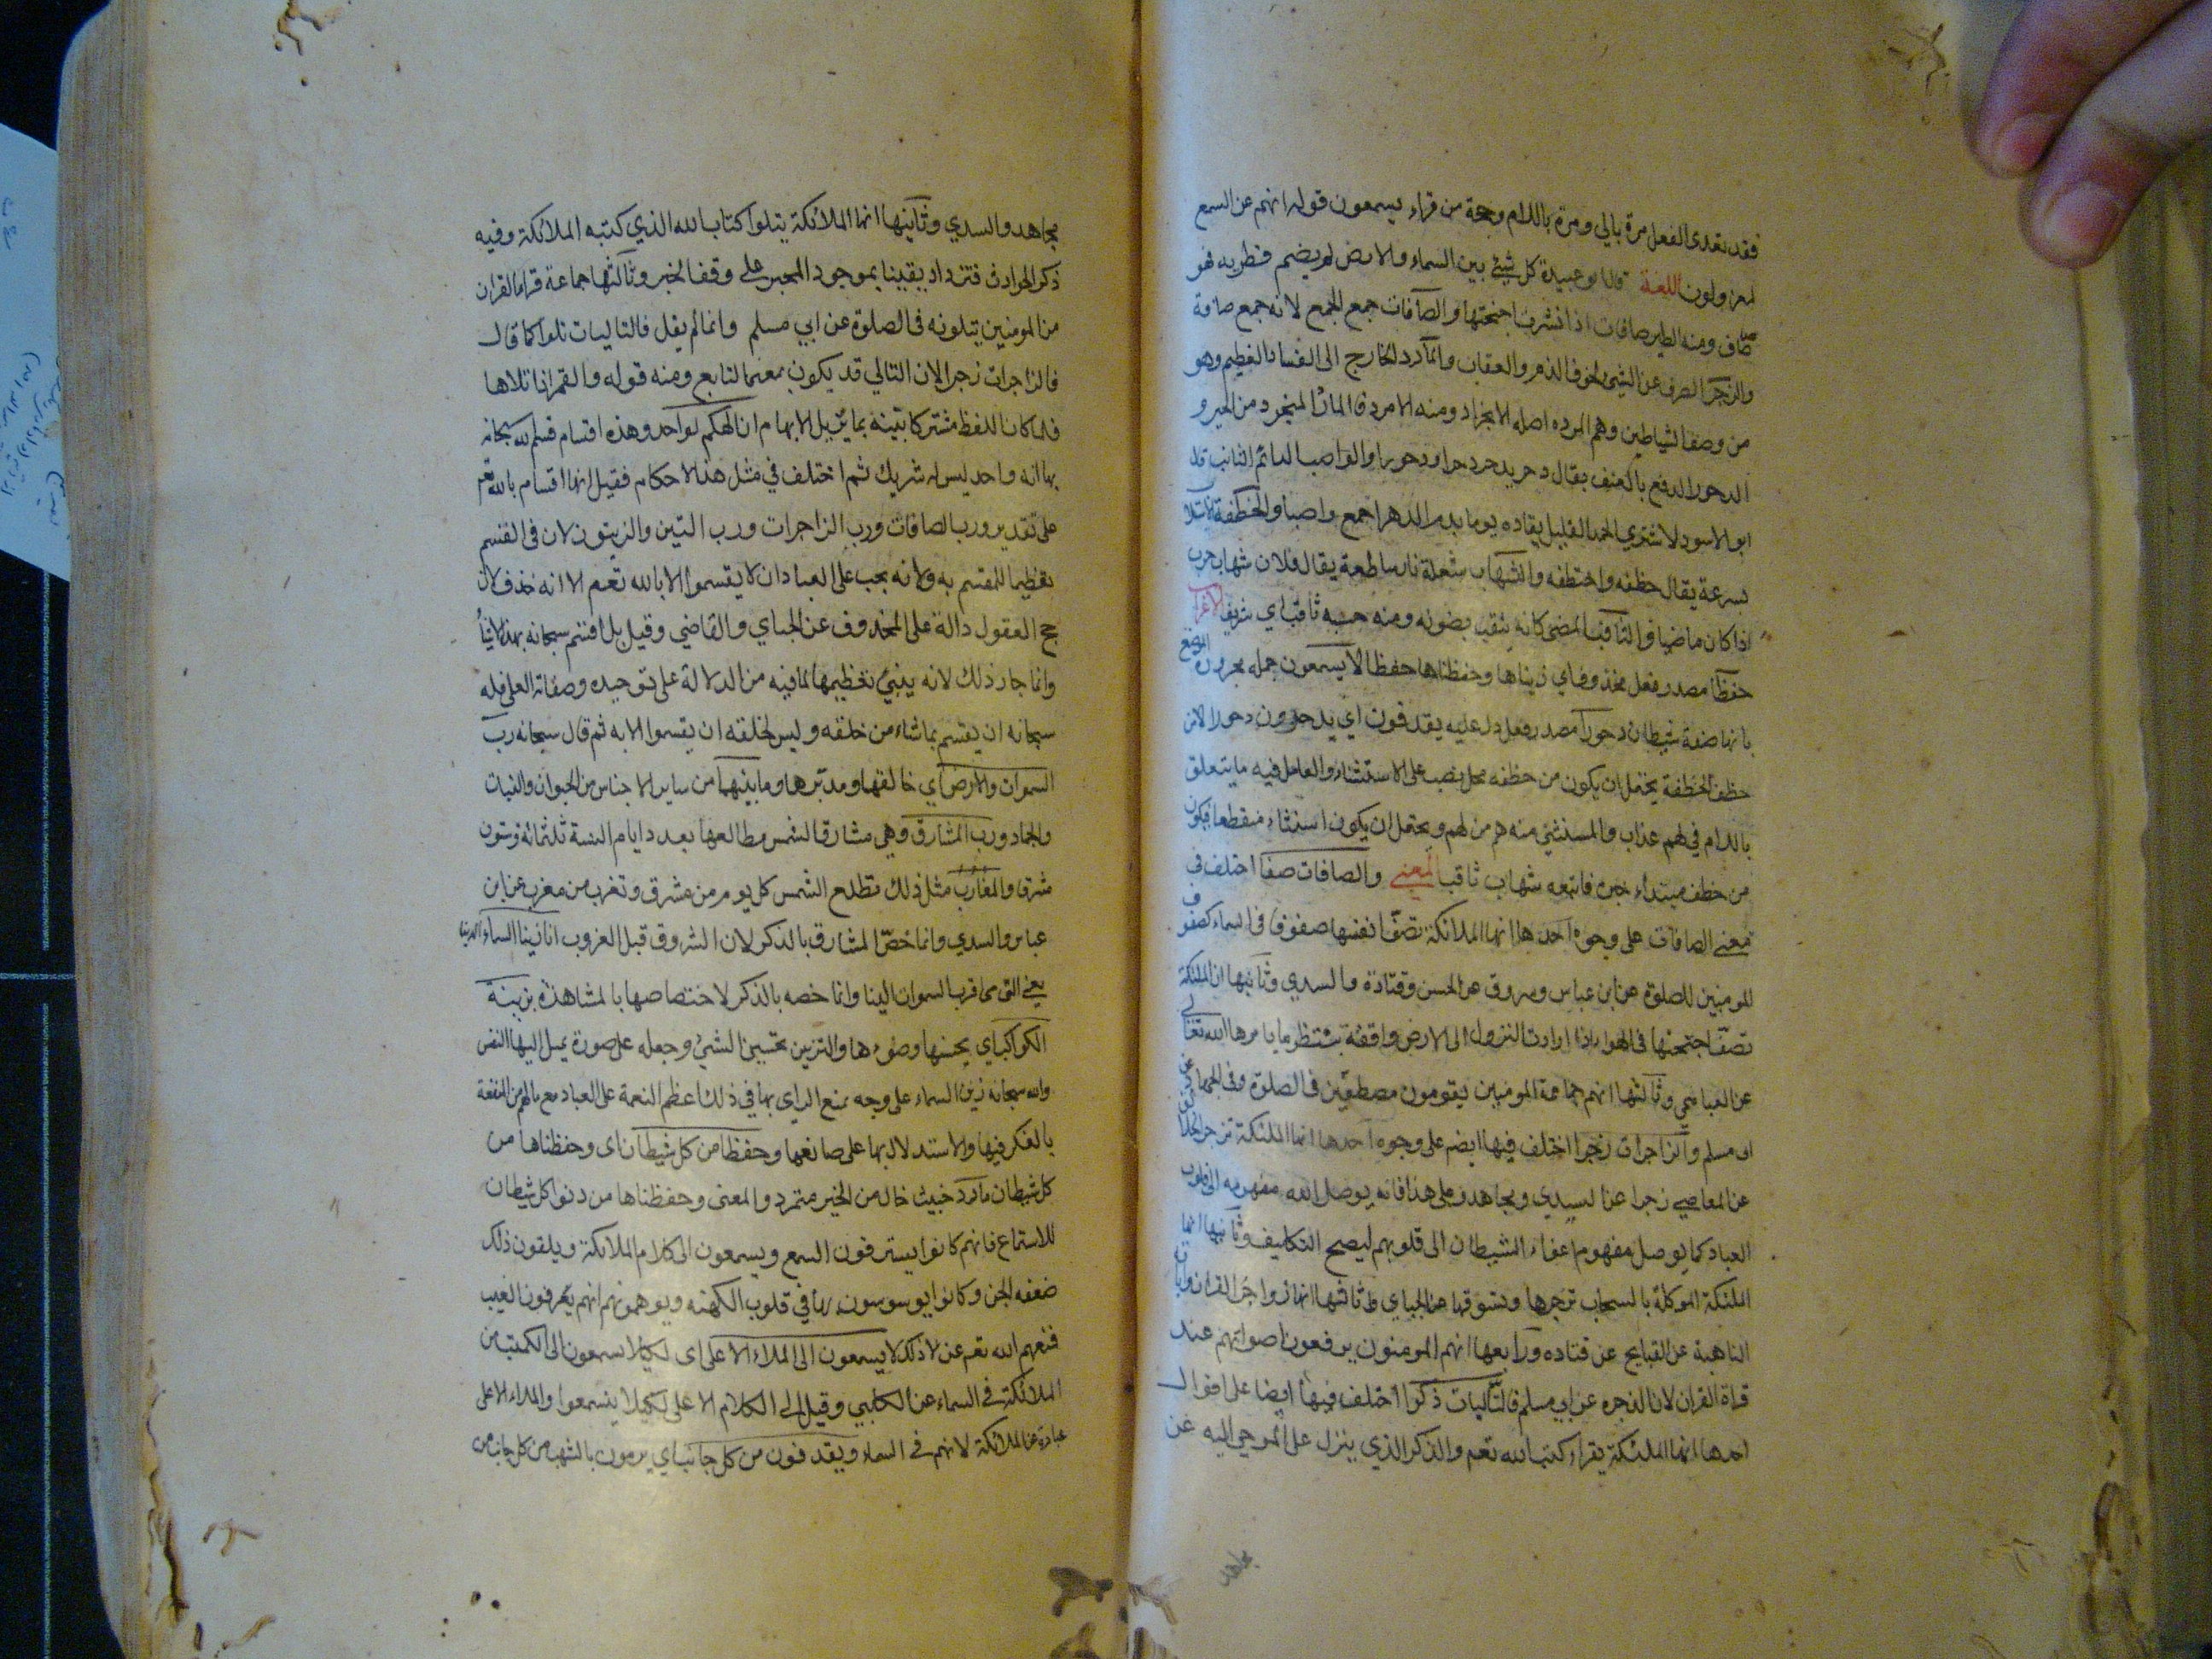 فقد تعدى الفعل مرة بالي ومرة باللام وحجة من قراء يسمعون قوله انهم عن السمع
لمعزولون اللغة قال ابو عبيدة كل شئ بين السماء والارض لم يضم قطريه فهو
صاف ومنه الطير صافات اذا نشرت اجنحتها والصافات جمع الجمع لانه جمع صافة
والزجر الصرف عن الشئ لخوف الذم والعقاب والمارد الخارج الى الفساد العظيم وهو
من وصف الشياطين وهم المردة اصله الانجراد ومنه الامرد فالمارد المنجرد من الخير و
الدحور الدفع بالعنف يقال دحر يدحر دحرا ودحورا والواصب الدائم الثابت قال
ابو الاسود لا اشتري الحمد القليل بقاده يوما بذم الدهر اجمع واصبا والخطفة الاستلا
بسرعة يقال خطفه واختطفه والشهاب شعلة نار ساطعة يقال فلان شهاب حرب
اذا كان ماضيا والثاقب المضئ كانه يثقب بضوئه ومنه حسب ثاقب اي شريف الاعراب
حفظا مصدر فعل محذوف اي زيناها وحفظناها حفظا لا يسمعون جمله مجرورة الموضع
بانها صفة شيطان دحورا مصدر فعل دل عليه يقذفون اي يدحرون دحورا الا من
خطف الخطفة يحتمل ان يكون من خطفه محل نصب على الاستثناء والعامل فيه ما يتعلق
باللام في لهم عذاب والمستثنى منه هم من لهم ويحتمل ان يكون استثناء منقطعا فيكون
من خطف مبتداء خبره فاتبعه شهاب ثاقب المعنى والصافات صفا اختلف في
معنى الصافات على وجوه احدها انها الملائكة تصف انفسها صفوفا في السماء كصفوف
المومنين للصلوة عن ابن عباس ومسروق عن الحسن وقتادة والسدي وثانيها ان الملئكة
تصف اجنحتها في الهواء اذا ارادت النزول الى الارض واقفة تنتظر ما يامرها الله تعالى
عن الجبائي وثالثها انهم جماعة المومنين يقومون مصطفين في الصلوة وفي الجهاد عن
ابي مسلم والزاجرات زجرا اختلف فيها ايضم على وجوه احدها انها الملئكة تزجر الخلائق
عن المعاصي زجرا عن السدي ومجاهد وعلى هذا فانه يوصل الله مفهومه الى قلوب
العباد كما يوصل مفهوم اغواء الشيطان الى قلوبهم ليصح التكليف وثانيها انها
الملئكة الموكلة بالسحاب تزجرها وتسوقها عن الجبائي وثالثها انها زواجر القران وآياته
الناهية عن القبايح عن قتاده ورابعها انهم المومنون يرفعون اصواتهم عند
قراة القران لان الزجره عن ابي مسلم فالتاليات ذكرا اختلف فيها ايضا على اقوال
احدها انها الملئكة يقراء كتب الله تعم والذكر الذي ينزل على الموحى اليه عن
مجاهد
مجاهد والسدي وثانيها انها الملائكة يتلوا كتاب الله الذي كتبه الملائكة وفيه
ذكر الحوادث فتزداد يقينا بموجود المخبر على وفق الخبر وثالثها جماعة قراء القران
من المومنين يتلونه في الصلوة عن ابي مسلم وانما لم يقل فالتاليات تلوا كما قال
فالزاجرات زجرا لان التالي قد يكون بمعنى التابع ومنه قوله والقمر اذا تلاها
فلما كان اللفظ مشتركا بينه بما يزيل الابهام ان الهكم لواحد وهذه اقسام قسم الله سبحانه
بها انه واحد ليس له شريك ثم اختلف في مثل هذا الاحكام فقيل انها اقسام بالله تعم
على تقدير ورب الصافات ورب الزاجرات ورب التين والزيتون لان في القسم
تعظيما للمقسم به ولانه يجب على العباد ان لا يقسموا الا بالله تعم الا انه حذف لان
حج العقول دالة على المحذوف عن الجباي والقاضي وقيل بل اقسم سبحانه بهذه الاشياء
وانما جاز ذلك لانه ينبئ تعظيمها بما فيه من الدلالة على توحيده وصفاته العلى فله
سبحانه ان يقسم بما شاء من خلقه وليس لخلقه ان يقسموا الا به ثم قال سبحانه رب
السموات والارض اي خالقها ومدبرها وما بينهما من ساير الاجناس من الحيوان والنبات
والجماد ورب المشارق وهي مشارق الشمس مطالعها بعدد ايام السنة ثلثمائة وستون
مشرق والمغارب مثل ذلك تطلع الشمس كل يوم من مشرق وتغرب من مغرب عن ابن
عباس والسدي وانما خص المشارق بالذكر لان الشروق قبل الغروب انا زينا السماء الدنيا
يعني التي هي اقرب السموات الينا وانما خصه بالذكر لاختصاصها بالمشاهدة بزينة
الكواكب اي بحسنها وضوءها والتزيين تحسين الشئ وجعله على صورة يميل اليها النفس
والله سبحانه زين السماء على وجه يمتع الراي بها في ذلك اعظم النعمة على العباد مع مالهم من المنفعة
بالفكر فيها والاستدلال بها على صانعها وحفظا من كل شيطان اى وحفظناها من
كل شيطان مارد خبيث خال من الخير متمرد والمعنى وحفظناها من دنوا كل شيطان
للاستماع فانهم كانوا يسترقون السمع ويسمعون الى كلام الملائكة ويلقون ذلك
ضعفه الجن وكانوا يوسوسون بها في قلوب الكهنه ويوهمونهم انهم يعرفون الغيب
فمنعهم الله تعم عن لا ذلك لا يسمعون الى الملاء الاعلى اى لكيلا يسمعون الى الكتبة من
الملائكة في السماء عن الكلبي وقيل الى الكلام الاعلى لكيلا يتسمعوا والملاء الاعلى
عبارة عن الملائكة لانهم في السماء ويقذفون من كل جانب اي يرمون بالشهب من كل جانب من